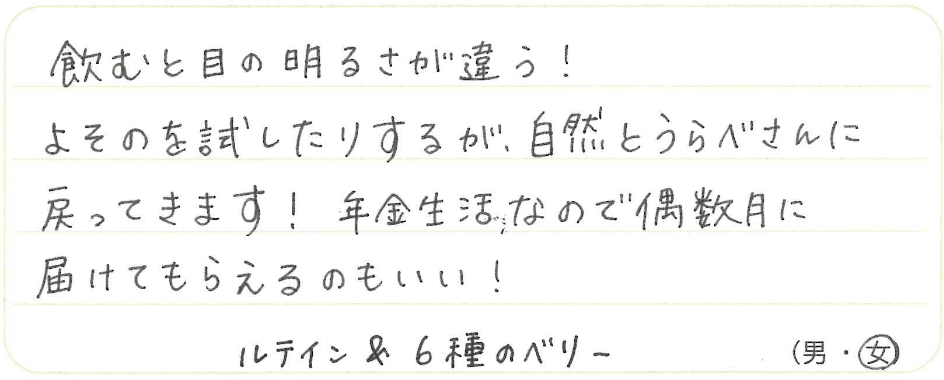 飲むと目の明るさが違う!
よそのを試したりするが、自然とうらべさんに
戻ってきます! 年金生活なので偶数月に
届けてもらえるのもいい!
ルテイン&6種のベリー (男・女)